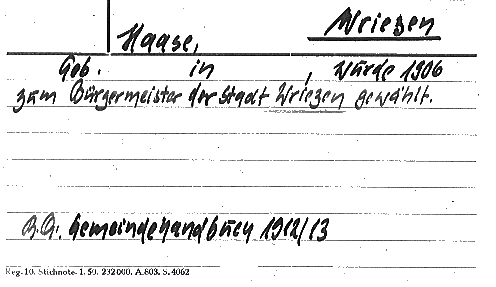 Wriezen
Haase,
Geb. in , wurde 1906
zum Bürgermeister der Stadt Wriezen gewählt.
Gemeindehandbuch 1912/13
Reg. 10. Stichnote. 1. 50. 232000. A.803. S. 4062